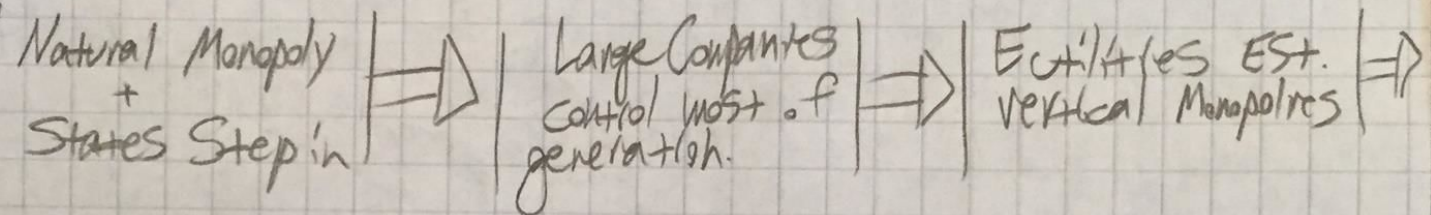 Natural Monopoly
+
States Step in
Large Companies
control most of
generation.
Eutilities Est.
vertical Monopolies